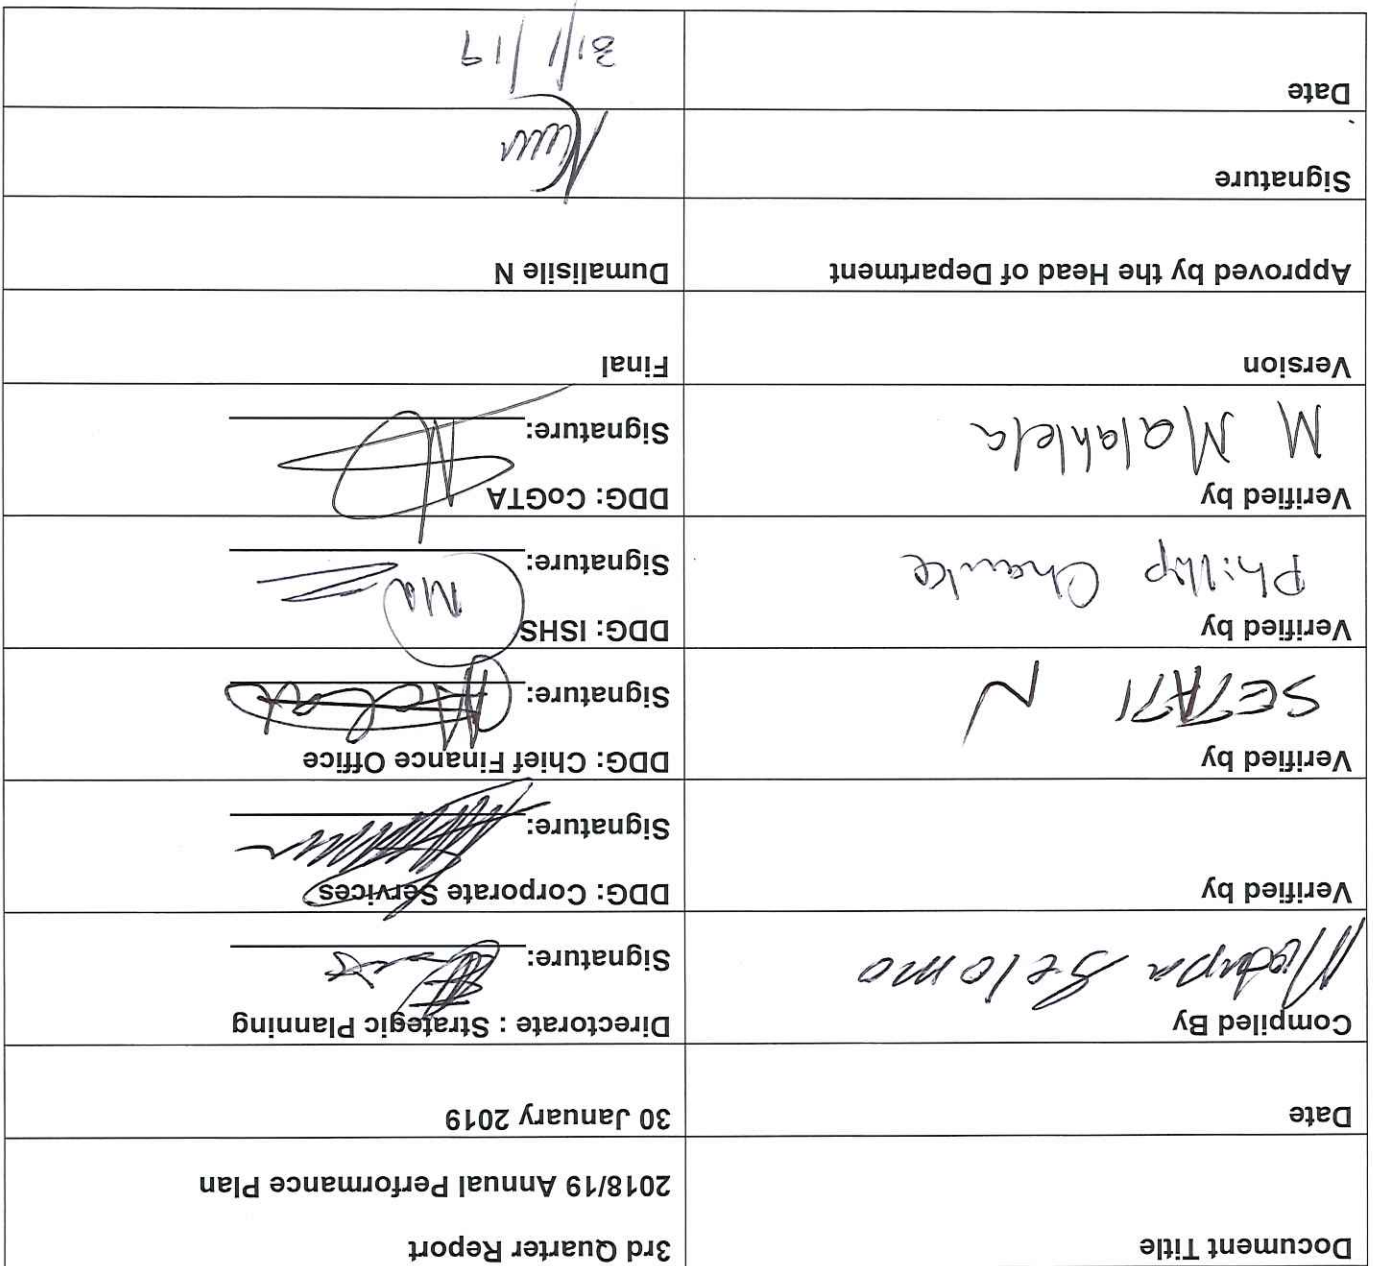 Document Title
3rd Quarter Report
2018/19 Annual Performance Plan
Date
30 January 2019
Compiled By
Selomo
Directorate : Strategic Planning
Signature:
Verified by
DDG: Corporate Services
Signature:
Verified by
SETATI N
DDG: Chief Finance Office
Signature:
Verified by
Phillip Chauke
DDG: ISHS
Signature:
Verified by
M Malahlela
DDG: CoGTA
Signature:
Version
Final
Approved by the Head of Department
Dumalisile N
Signature
Date
31/1/19